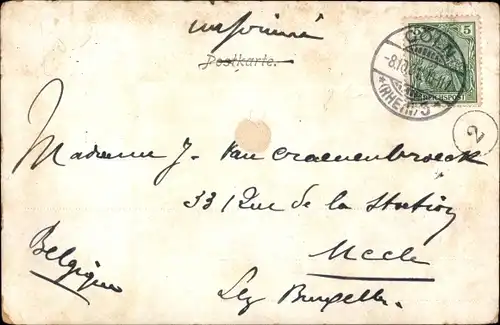 imprimé
Postkarte.
5
CÖLN
REICHSPOST
*(RHEIN) 3*
2
Madame J. Van Craenenbroeck
33 Rue de la Station
Uccle
Lez Bruxelles.
Belgique